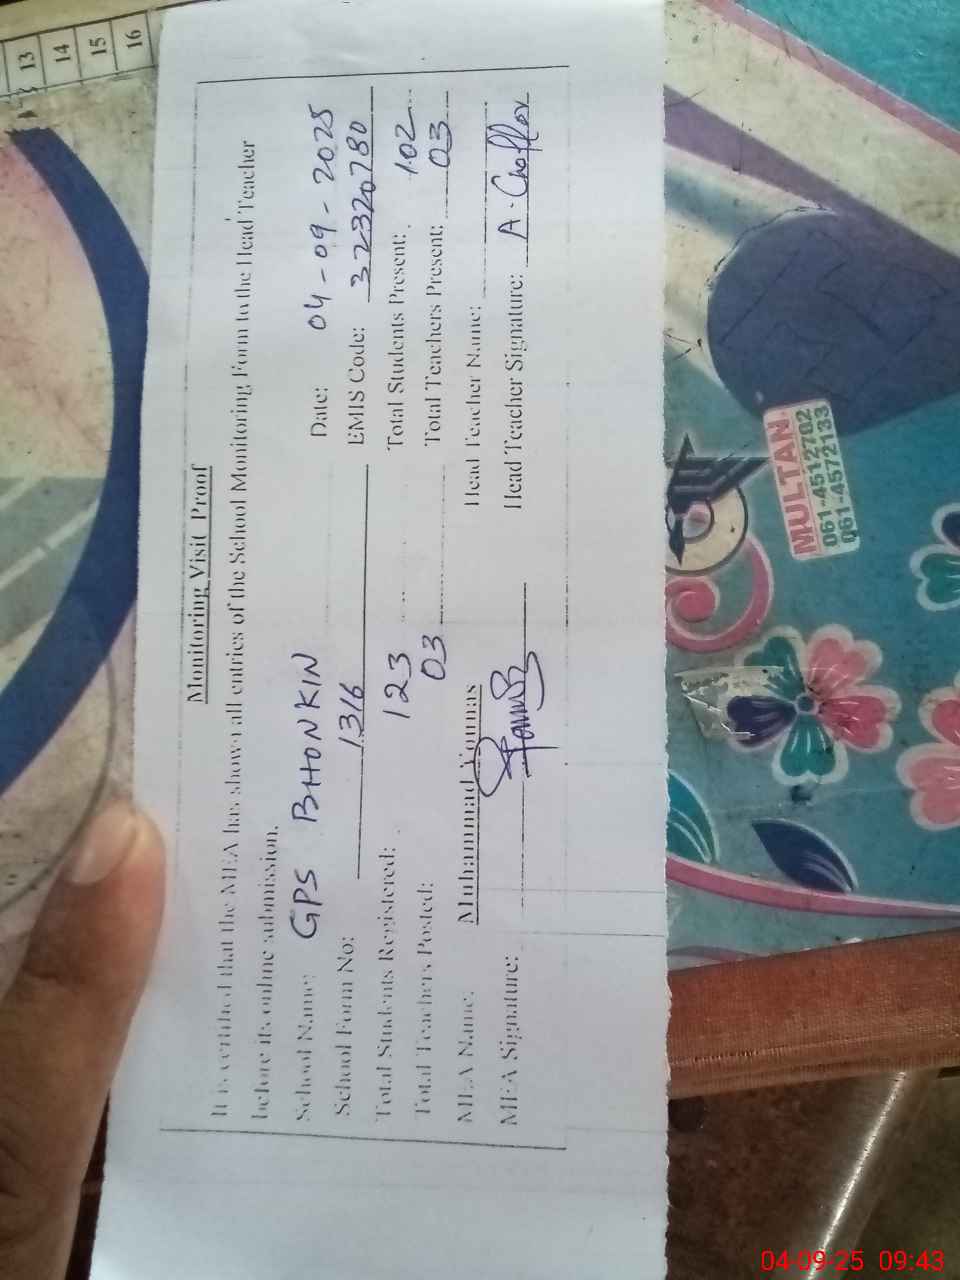 Monitoring Visit Proof
It is certified that the MEA has shown all entries of the School Monitoring Form to the Head Teacher
before its online submission.
School Name: GPS BHONKIN Date: 04-09-2025
School Form No: 1316 EMIS Code: 32320780
Total Students Registered: 123 Total Students Present: 102
Total Teachers Posted: 03 Total Teachers Present: 03
MEA Name: Muhammad Younas Head Teacher Name:
MEA Signature: Head Teacher Signature: A.
13
14
15
16
MULTAN.
061-4512702
061-4572133
04-09-25 09:43